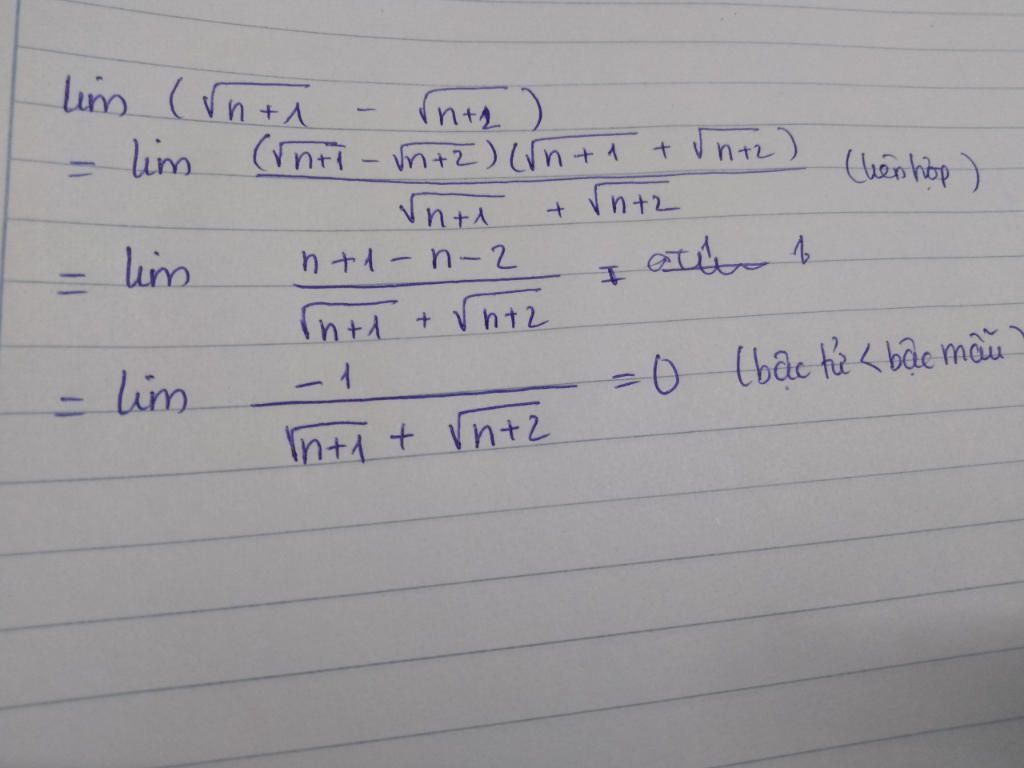 lim (√n+1 - √n+2)
= lim (√n+1 - √n+2)(√n+1 + √n+2) / √n+1 + √n+2 (liên hợp)
= lim n+1-n-2 / √n+1 + √n+2
= lim -1 / √n+1 + √n+2 = 0 (bậc tử < bậc mẫu)